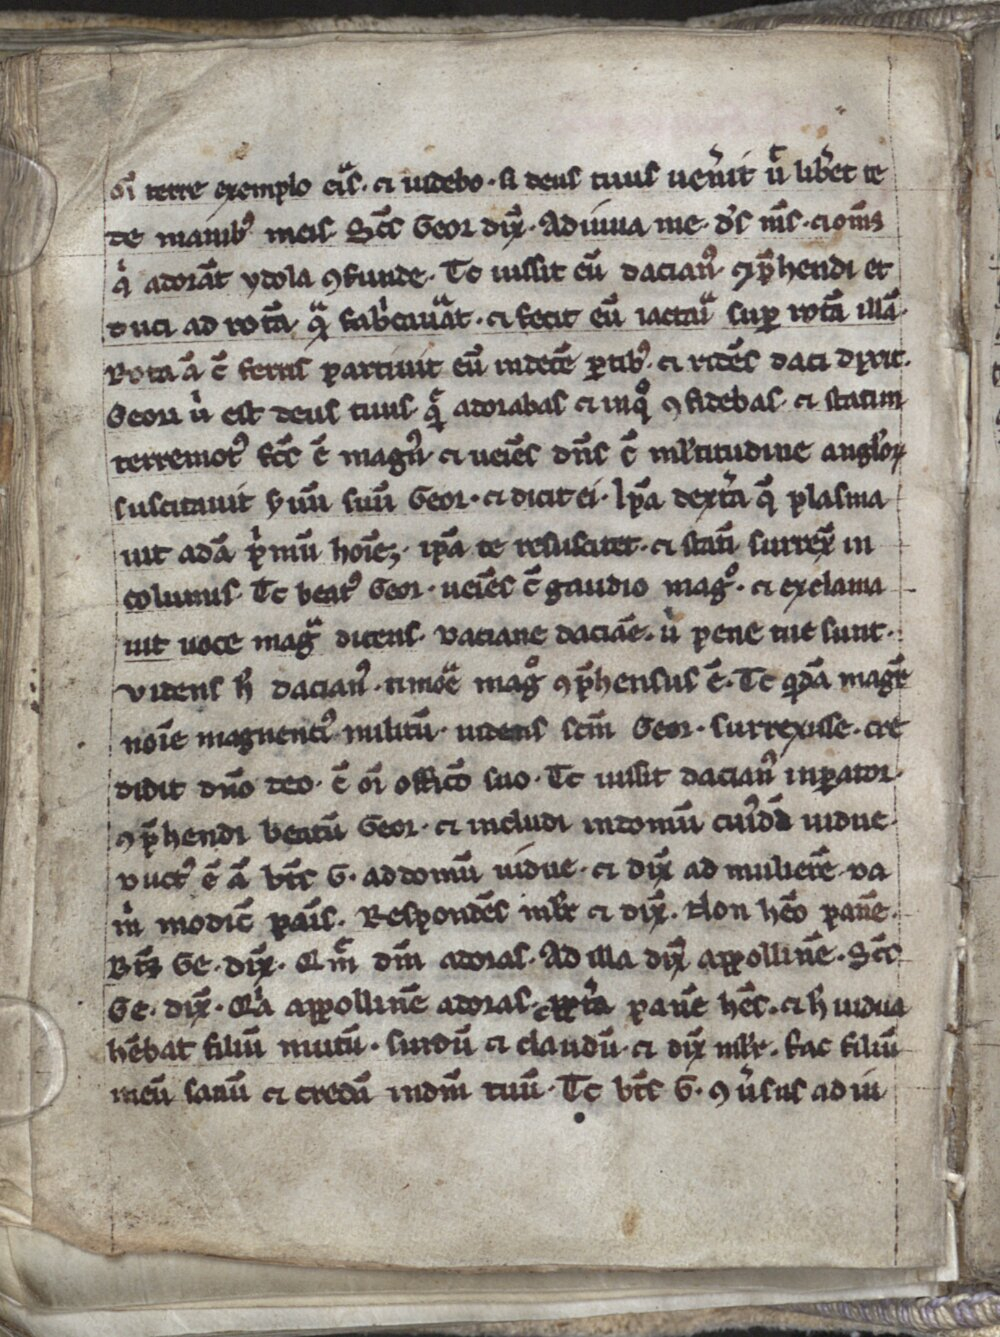 oi terre exemplo eiꝰ. et uidebo. si deus tuus uenit ut libet te
de manibꝰ meis Scs Geor dix. Adiuua me. ds ms. et oms
qi adorat ydola ꝯfunde. Tc iussit eu dacianꝰ ꝯphendi et
duci ad rota qua fabcauat. et fecit eu iactari sup rota illa.
Rota a c ferris partiuit eu indece ptibꝰ. et rides daci dixit.
Geori u est deus tuus. que adorabas et inquo ꝯfidebas. et statim
terremotꝰ fcs e magnꝰ. et ueies dns c mltitudine angloꝝ
suscitauit suu Geor. et dicit ei. Ipa dextra que plasma
uit ada pimu hoiem. ipa te resuscitet. et stati surrex in
columis. Tc beatꝰ Geor. ueies c gaudio mago. et exclama
uit uoce maga dicens. Daciane daciae. u pene tue sunt.
Videns h dacianꝰ timoe mago ꝯphensus e. Tc qda magr
noie magnenciꝰ militu. uidens scm Geor. surrexisse. cre
didit dno deo. c oi officio suo. Tc iussit dacianꝰ inpator.
ꝯphendi beatu Geor. et includi indomu cuidā uidue.
Ductꝰ e a bts G. addomu uidue. et dix ad muliere. Da
m modic pais. Respondes mlr et dix. Non heo pane.
Bts Ge. dix. Que dm adoras. Ad illa dix appolline. Scs
Ge. dix. Quia appolline adoras. pane hes. et h uidua
hebat filiu mutu. surdu et claudu. et dix mlr. Fac filiu
meu sanu et creda indm tuu. Tc bts G. ꝯuersus ad ui